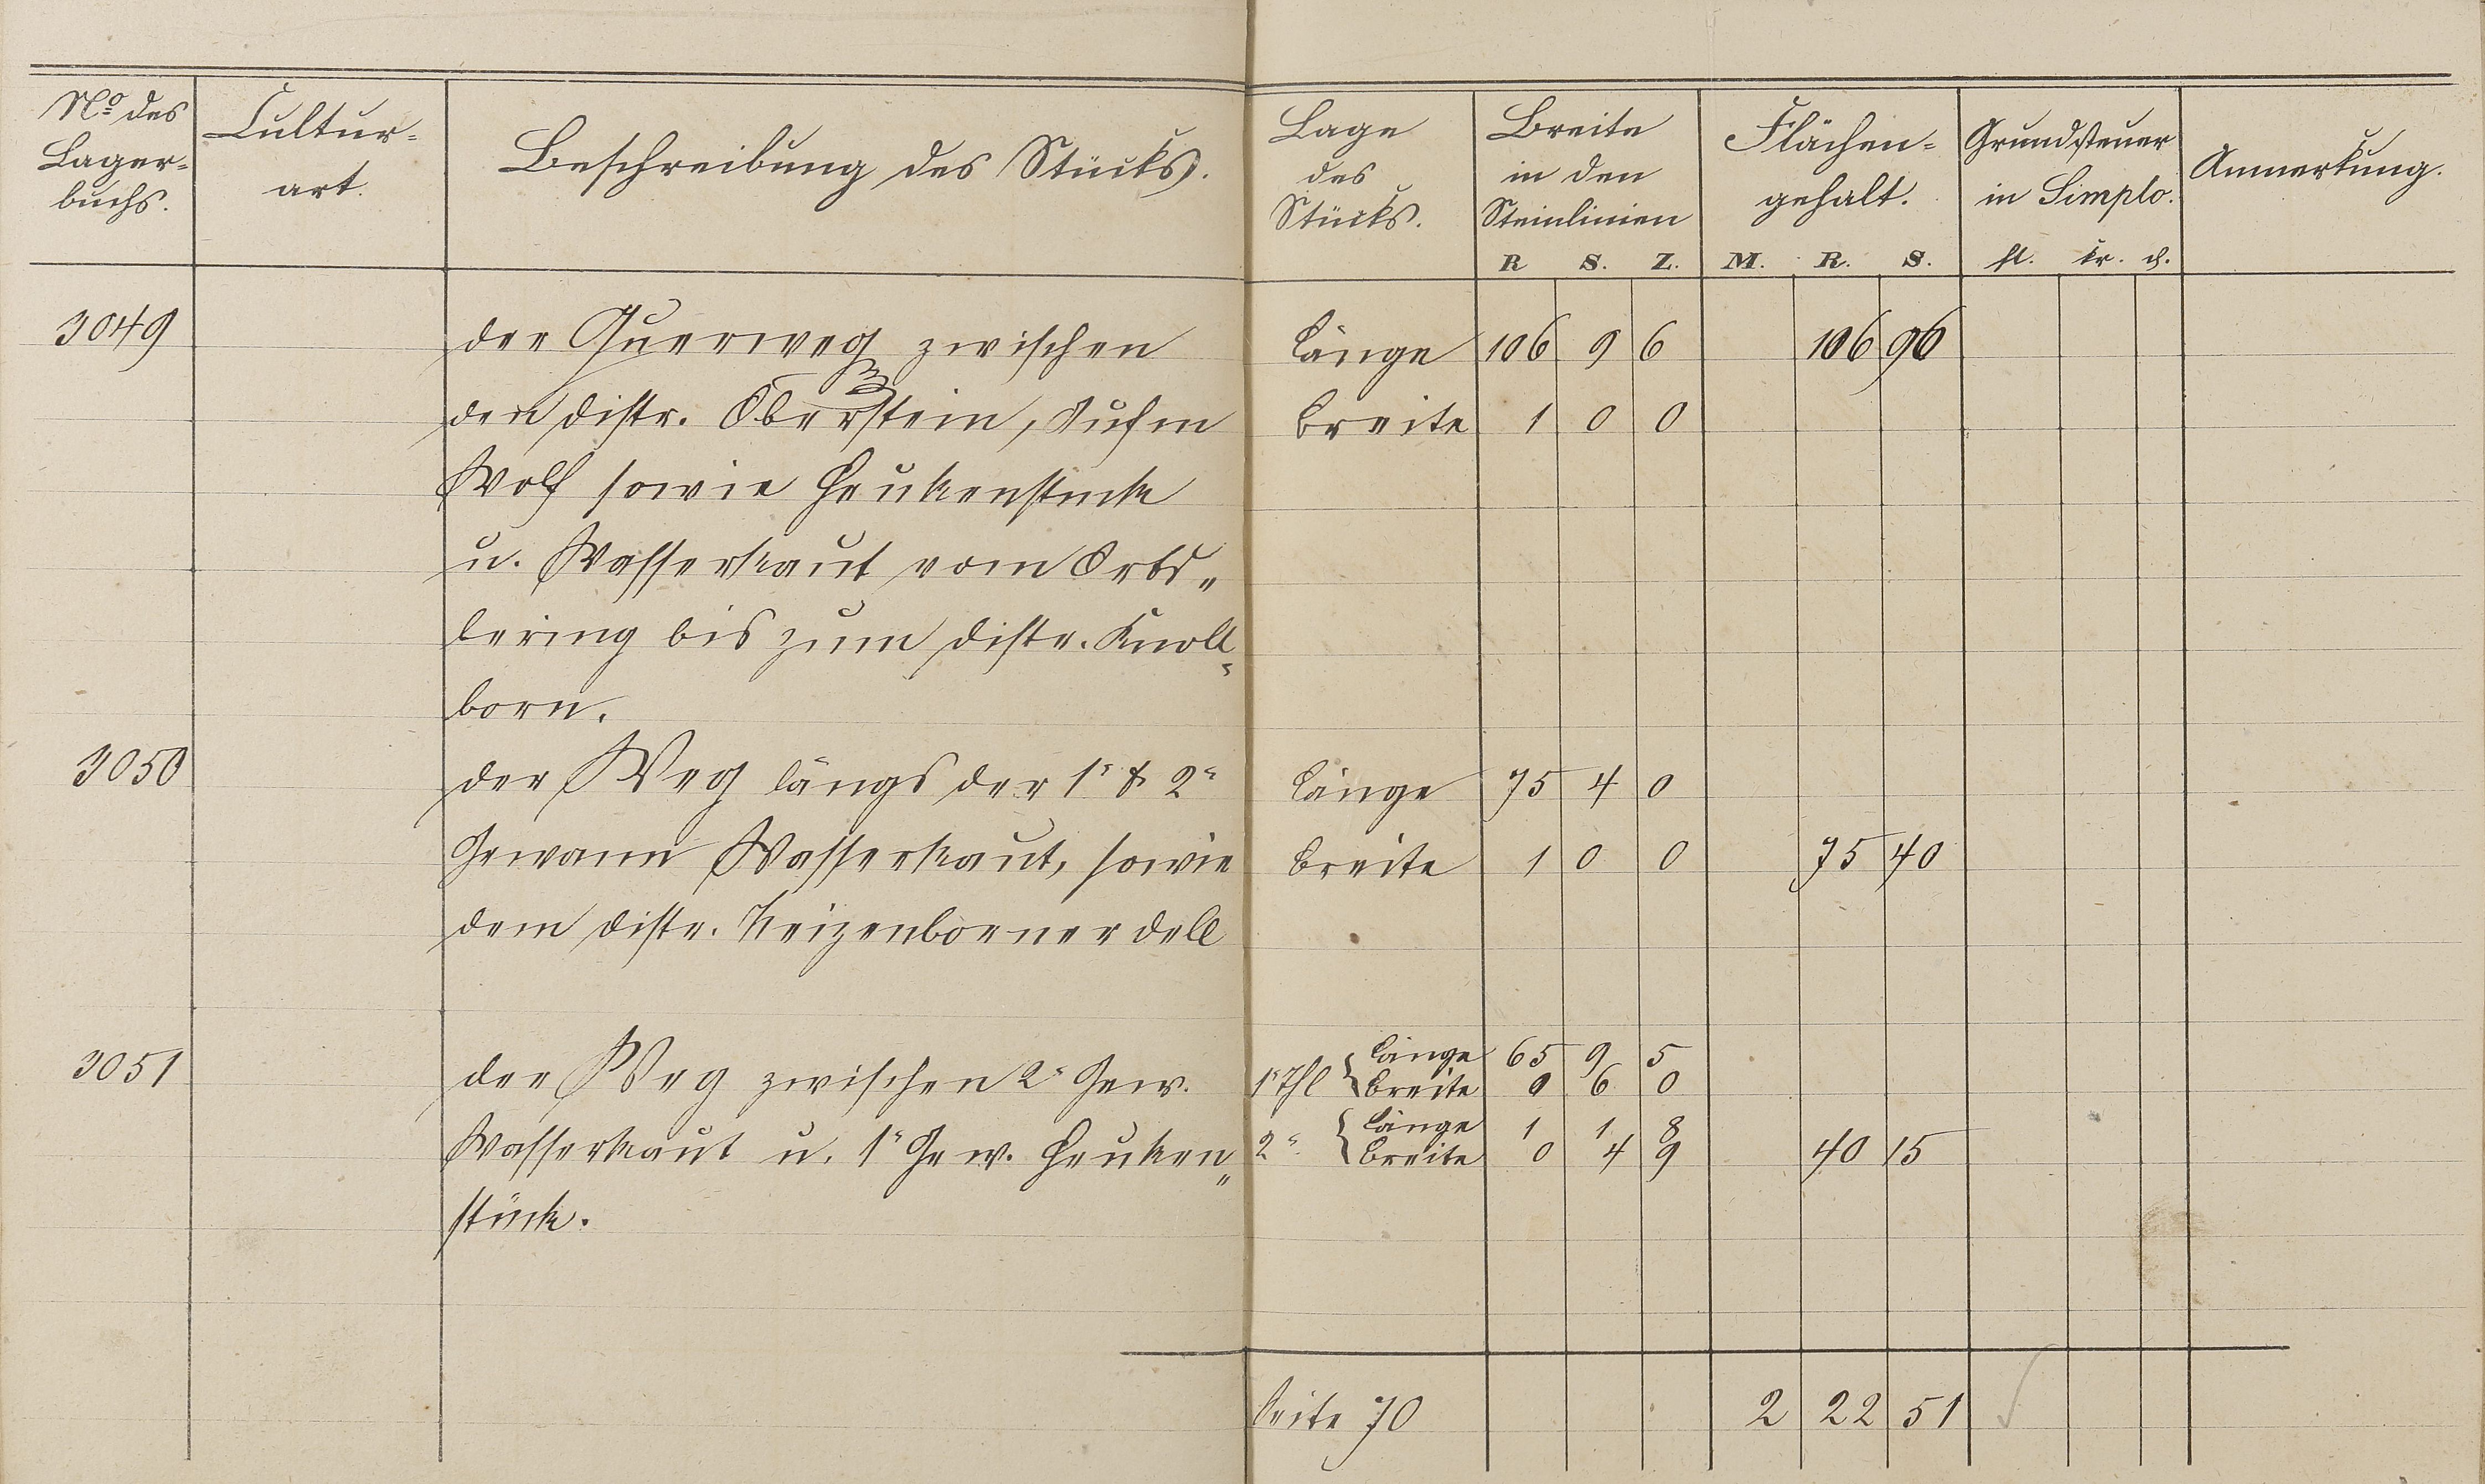 No des Lager-buchs.
Cultur-art.
Beschreibung des Stücks.
Lage des Stücks.
Breite in den Steinlinien
R S. Z.
Flächen-gehalt.
M. R. S.
Grundsteuer in Simplo.
fl. kr. d.
Anmerkung.
3049 der Querweg zwischen Länge 106 9 6 106 96
den Distr. Oberstein, Aufm Breite 1 0 0
Wolf sowie Heukenstück
u. Wasserkaut vom Orts-
bering bis zum Distr. Knoll-
born.
3050 der Weg längs der 1r & 2r Länge 75 4 0
Gewann Wasserkaut, sowie Breite 1 0 0 75 40
dem Distr. Keizenbornerdell
3051 der Weg zwischen 2r Gew. 1r Thl Länge 65 9 5
Breite 0 6 0
Wasserkaut u. 1r Gew. Heuken- 2r Länge 1 1 8
Breite 0 4 9 40 15
stück.
Seite 70 2 22 51